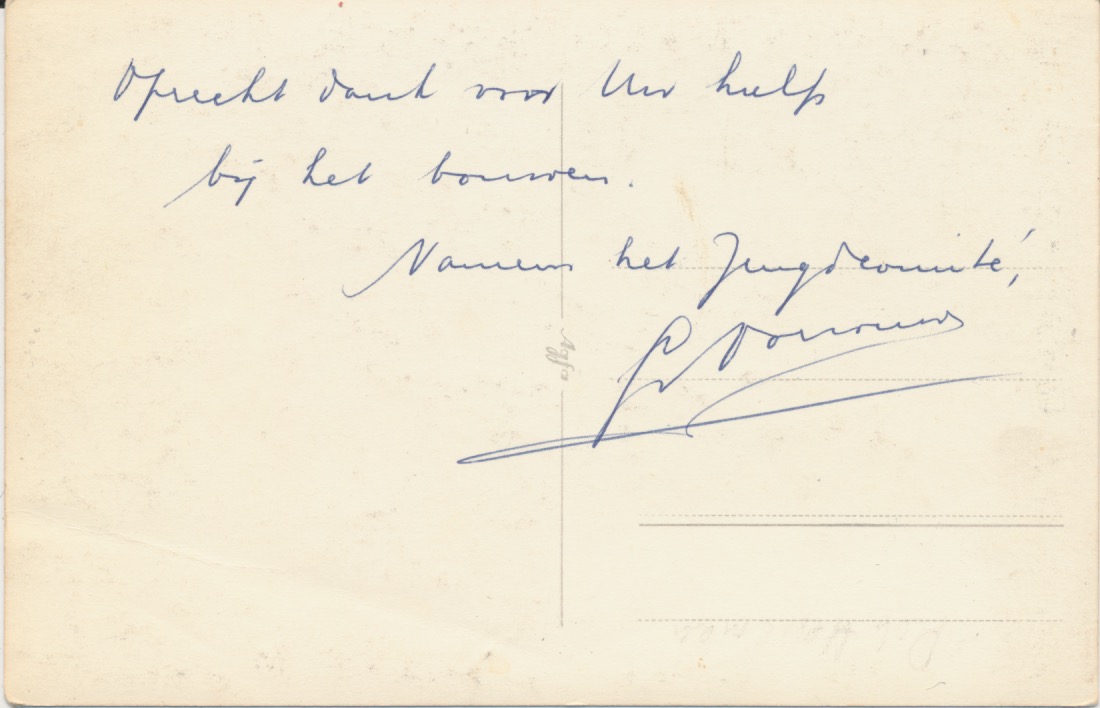 Oprecht dank voor Uw hulp
bij het bouwen.
Namens het Jeugdcomité,
Agfa